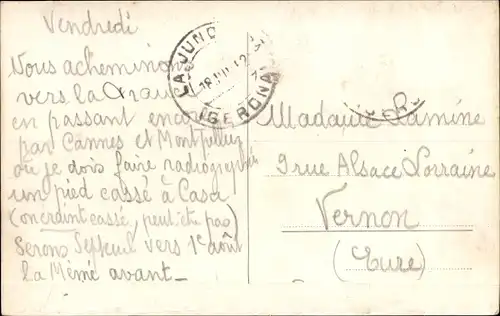 Vendredi
Nous acheminons
vers la France
en passant encore
par Cannes et Montpellier
où je dois faire radiographier
un pied cassé à Casa
(on craint cassé, peut-être pas)
Serons vers 1er août
la Mémé avant—
LA JUNQ
18
(GERONA)
Madame Lamine
9 rue Alsace Lorraine
Vernon
(Eure)